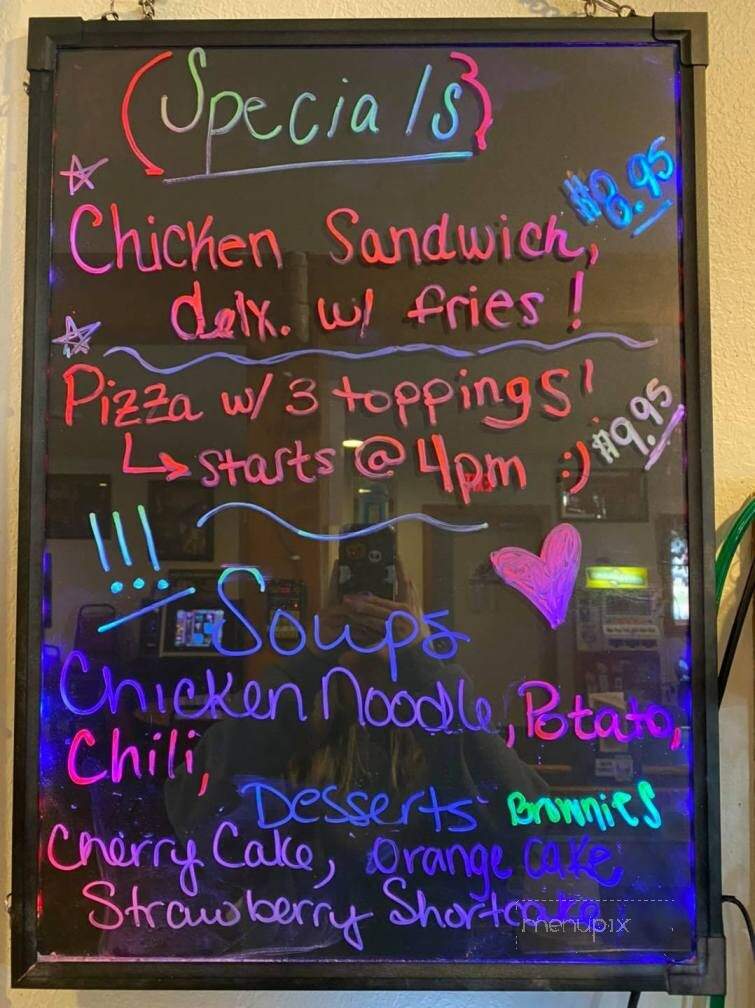 (Specials}
$8.95
Chicken Sandwich,
delx. w/ fries!
Pizza w/ 3 toppings!
↳ starts @ 4pm :)
$9.95
!!!
Soups
Chicken Noodle, Potato,
Chili,
Desserts Brownies
Cherry Cake, Orange cake
Strawberry Shortcake
menupix